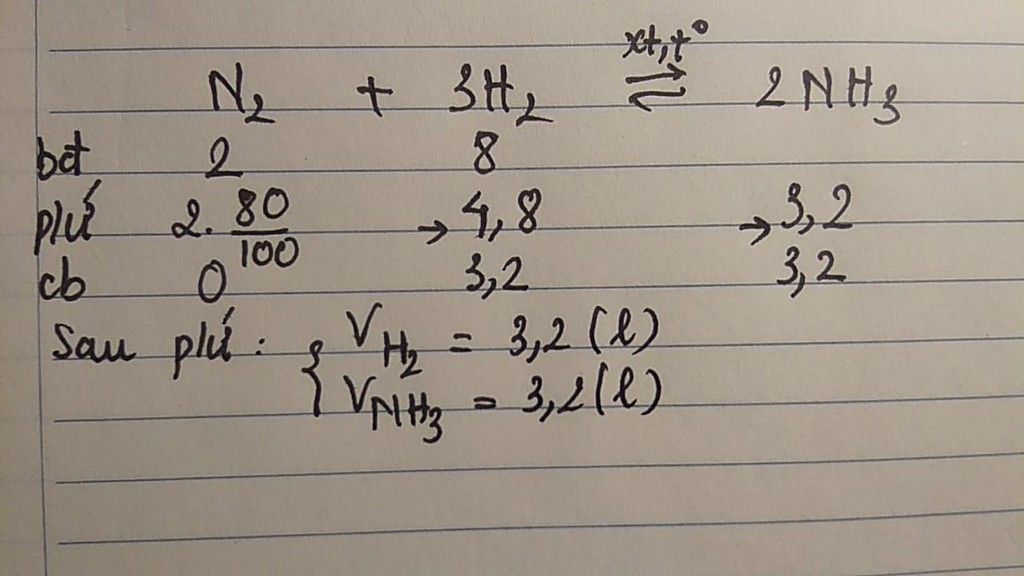 xt, t°
N₂ + 3H₂ ⇌ 2NH₃
bđ 2 8
pứ 2. 80/100 → 4,8 → 3,2
cb 0 3,2 3,2
Sau pứ : { V_H₂ = 3,2 (l)
V_NH₃ = 3,2 (l)